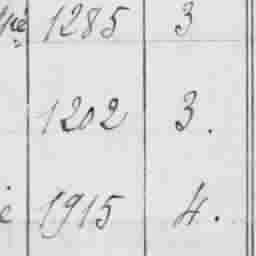 1285 3
1202 3.
1915 4.